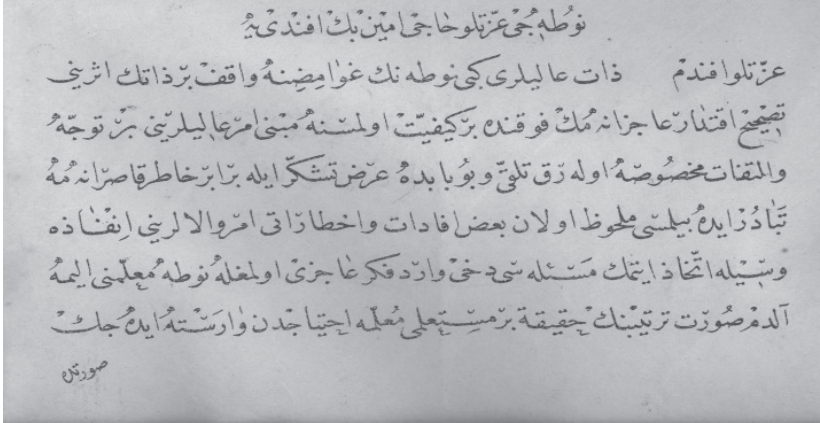 نوطه جی عزتلو حاجی امین بك افندی یه
عزتلو افندم ذات عالیلری كبی نوطه نك غوامضنه واقف بر ذاتك اثرینی
تصحیح اقتدار عاجزانه مك فوقنده بر كیفیت اولمسنه مبنی امر عالیلرینی بر توجه
والتفات مخصوصه اوله رق تلقی و بو بابده عرض تشكر ایله برابر خاطر قاصرانه مه
تبادر ایده بیلمسی ملحوظ اولان بعض افادات واخطاراتی امر والالرینی انفاذه
وسیله اتخاذ ایتمك مسئله سی دخی وارد فكر عاجزی اولمغله نوطه معلمنی الیمه
آلدم صورت ترتیبنك حقیقة بر مستعلمی معلمه احتیاجدن وارسته ایده جك
صورتده